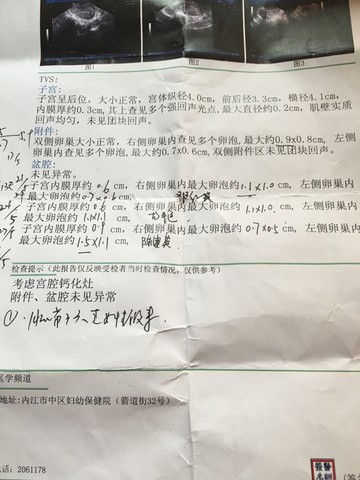 图1 图2 图3
TVS:
子宫:
子宫呈后位，大小正常，宫体纵径4.0cm，前后径3.3cm，横径4.1cm，
内膜厚约0.3cm，其上查见多个强回声光点，最大直径约0.2cm，肌壁实质
回声均匀，未见团块回声。
附件:
双侧卵巢大小正常，右侧卵巢内查见多个卵泡，最大约0.9x0.8cm，左侧
卵巢内查见多个卵泡，最大约0.7x0.6cm，双侧附件区未见团块回声。
盆腔:
未见异常。
子宫内膜厚约 0.6 cm，右侧卵巢内最大卵泡约1.1x1.0 cm，左侧卵巢内
最大卵泡约0.7x0.6cm。
子宫内膜厚约 0.6 cm，右侧卵巢内最大卵泡约 1.1x1.0 cm，左侧卵巢内
最大卵泡约 1.1x1.1 cm。
子宫内膜厚约 0.9 cm，右侧卵巢内最大卵泡约 0.7x0.5 cm，左侧卵巢内
最大卵泡约 1.5x1.1 cm。
检查提示（此报告仅反映受检者当时检查情况，仅供参考）
考虑宫腔钙化灶
附件、盆腔未见异常
①
医学频道
地址:内江市中区妇幼保健院（箭道街32号）
电话: 2061178